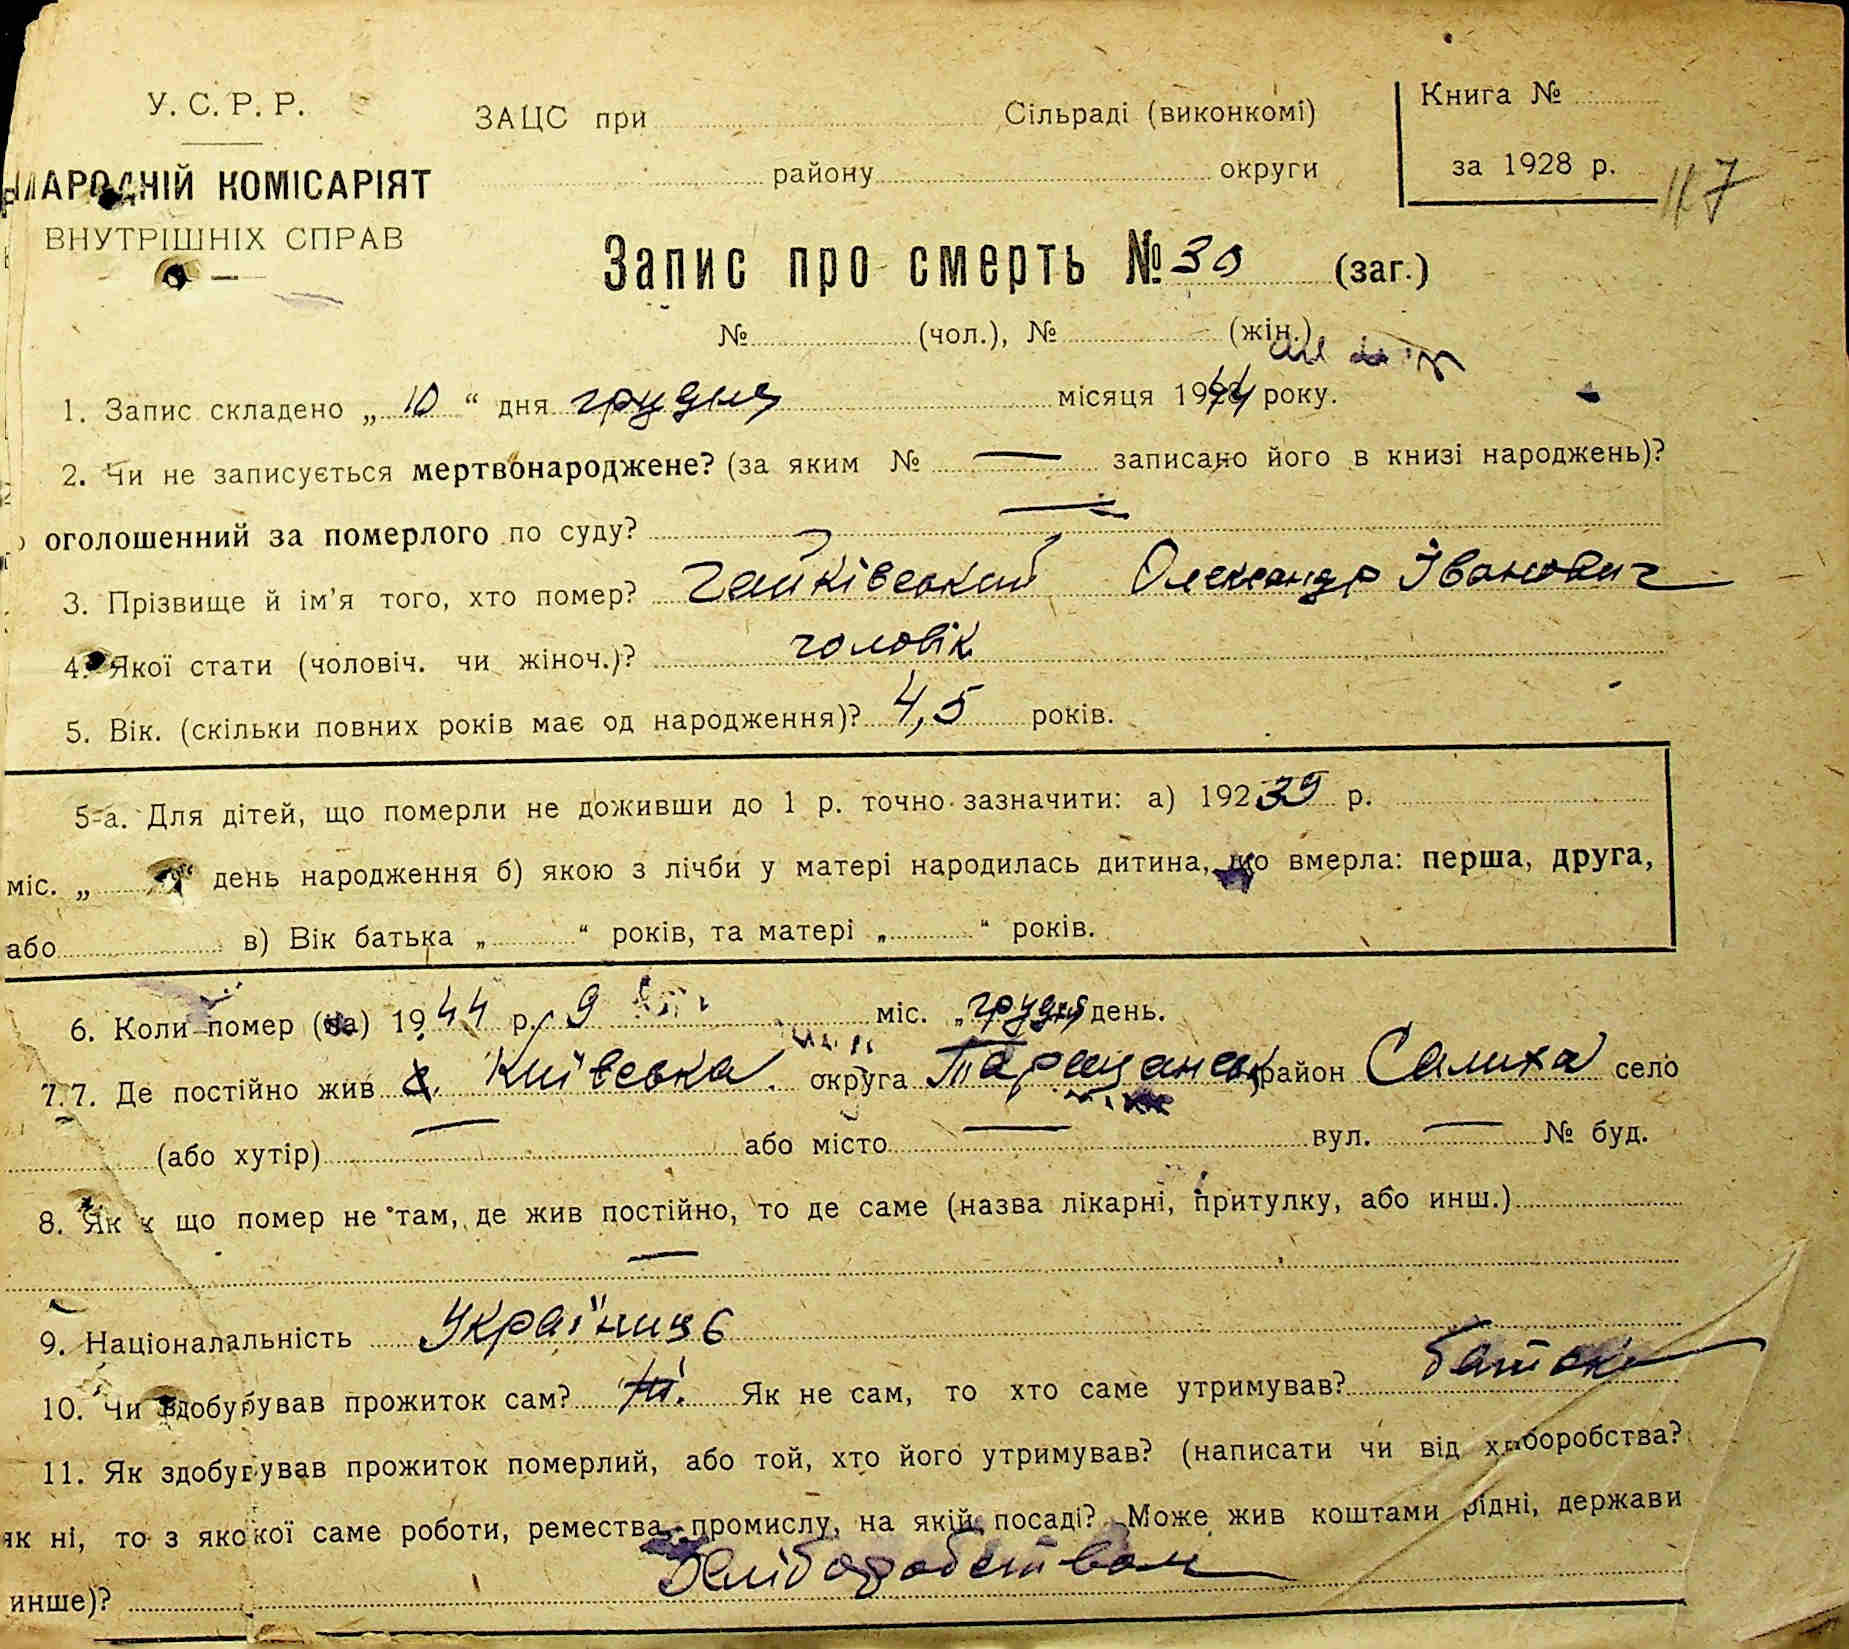 У. С. Р. Р.
НАРОДНІЙ КОМІСАРІЯТ
ВНУТРІШНІХ СПРАВ
ЗАЦС при Сільраді (виконкомі)
району округи
Книга №
за 1928 р.
117
Запис про смерть № 30 (заг.)
№ (чол.), № (жін.)
1. Запис складено „ 10 “ дня грудня місяця 1944 року.
2. Чи не записується мертвонароджене? (за яким № — записано його в книзі народжень)?
оголошенний за померлого по суду? —
3. Прізвище й ім’я того, хто помер? Чайківський Олександр Іванович
4. Якої стати (чоловіч. чи жіноч.)? чоловік
5. Вік. (скільки повних років має од народження)? 4,5 років.
5-а. Для дітей, що померли не доживши до 1 р. точно зазначити: а) 192 39 р.
міс. „ “ день народження б) якою з лічби у матері народилась дитина, що вмерла: перша, друга,
або в) Вік батька „ “ років, та матері „ “ років.
6. Коли помер (ла) 1944 р. 9 міс. „ грудня день.
7. 7. Де постійно жив Київська округа Таращанськ район Салиха село
(або хутір) — або місто — вул. — № буд.
8. Як що помер не там, де жив постійно, то де саме (назва лікарні, притулку, або инш.)
—
9. Націонаłальність Українць
10. Чи здобував прожиток сам? Ні. Як не сам, то хто саме утримував? батьки
11. Як здобував прожиток померлий, або той, хто його утримував? (написати чи від хліборобства?
як ні, то з якої саме роботи, ремества, промислу, на якій посаді? Може жив коштами рідні, держави
инше)? Хліборобством